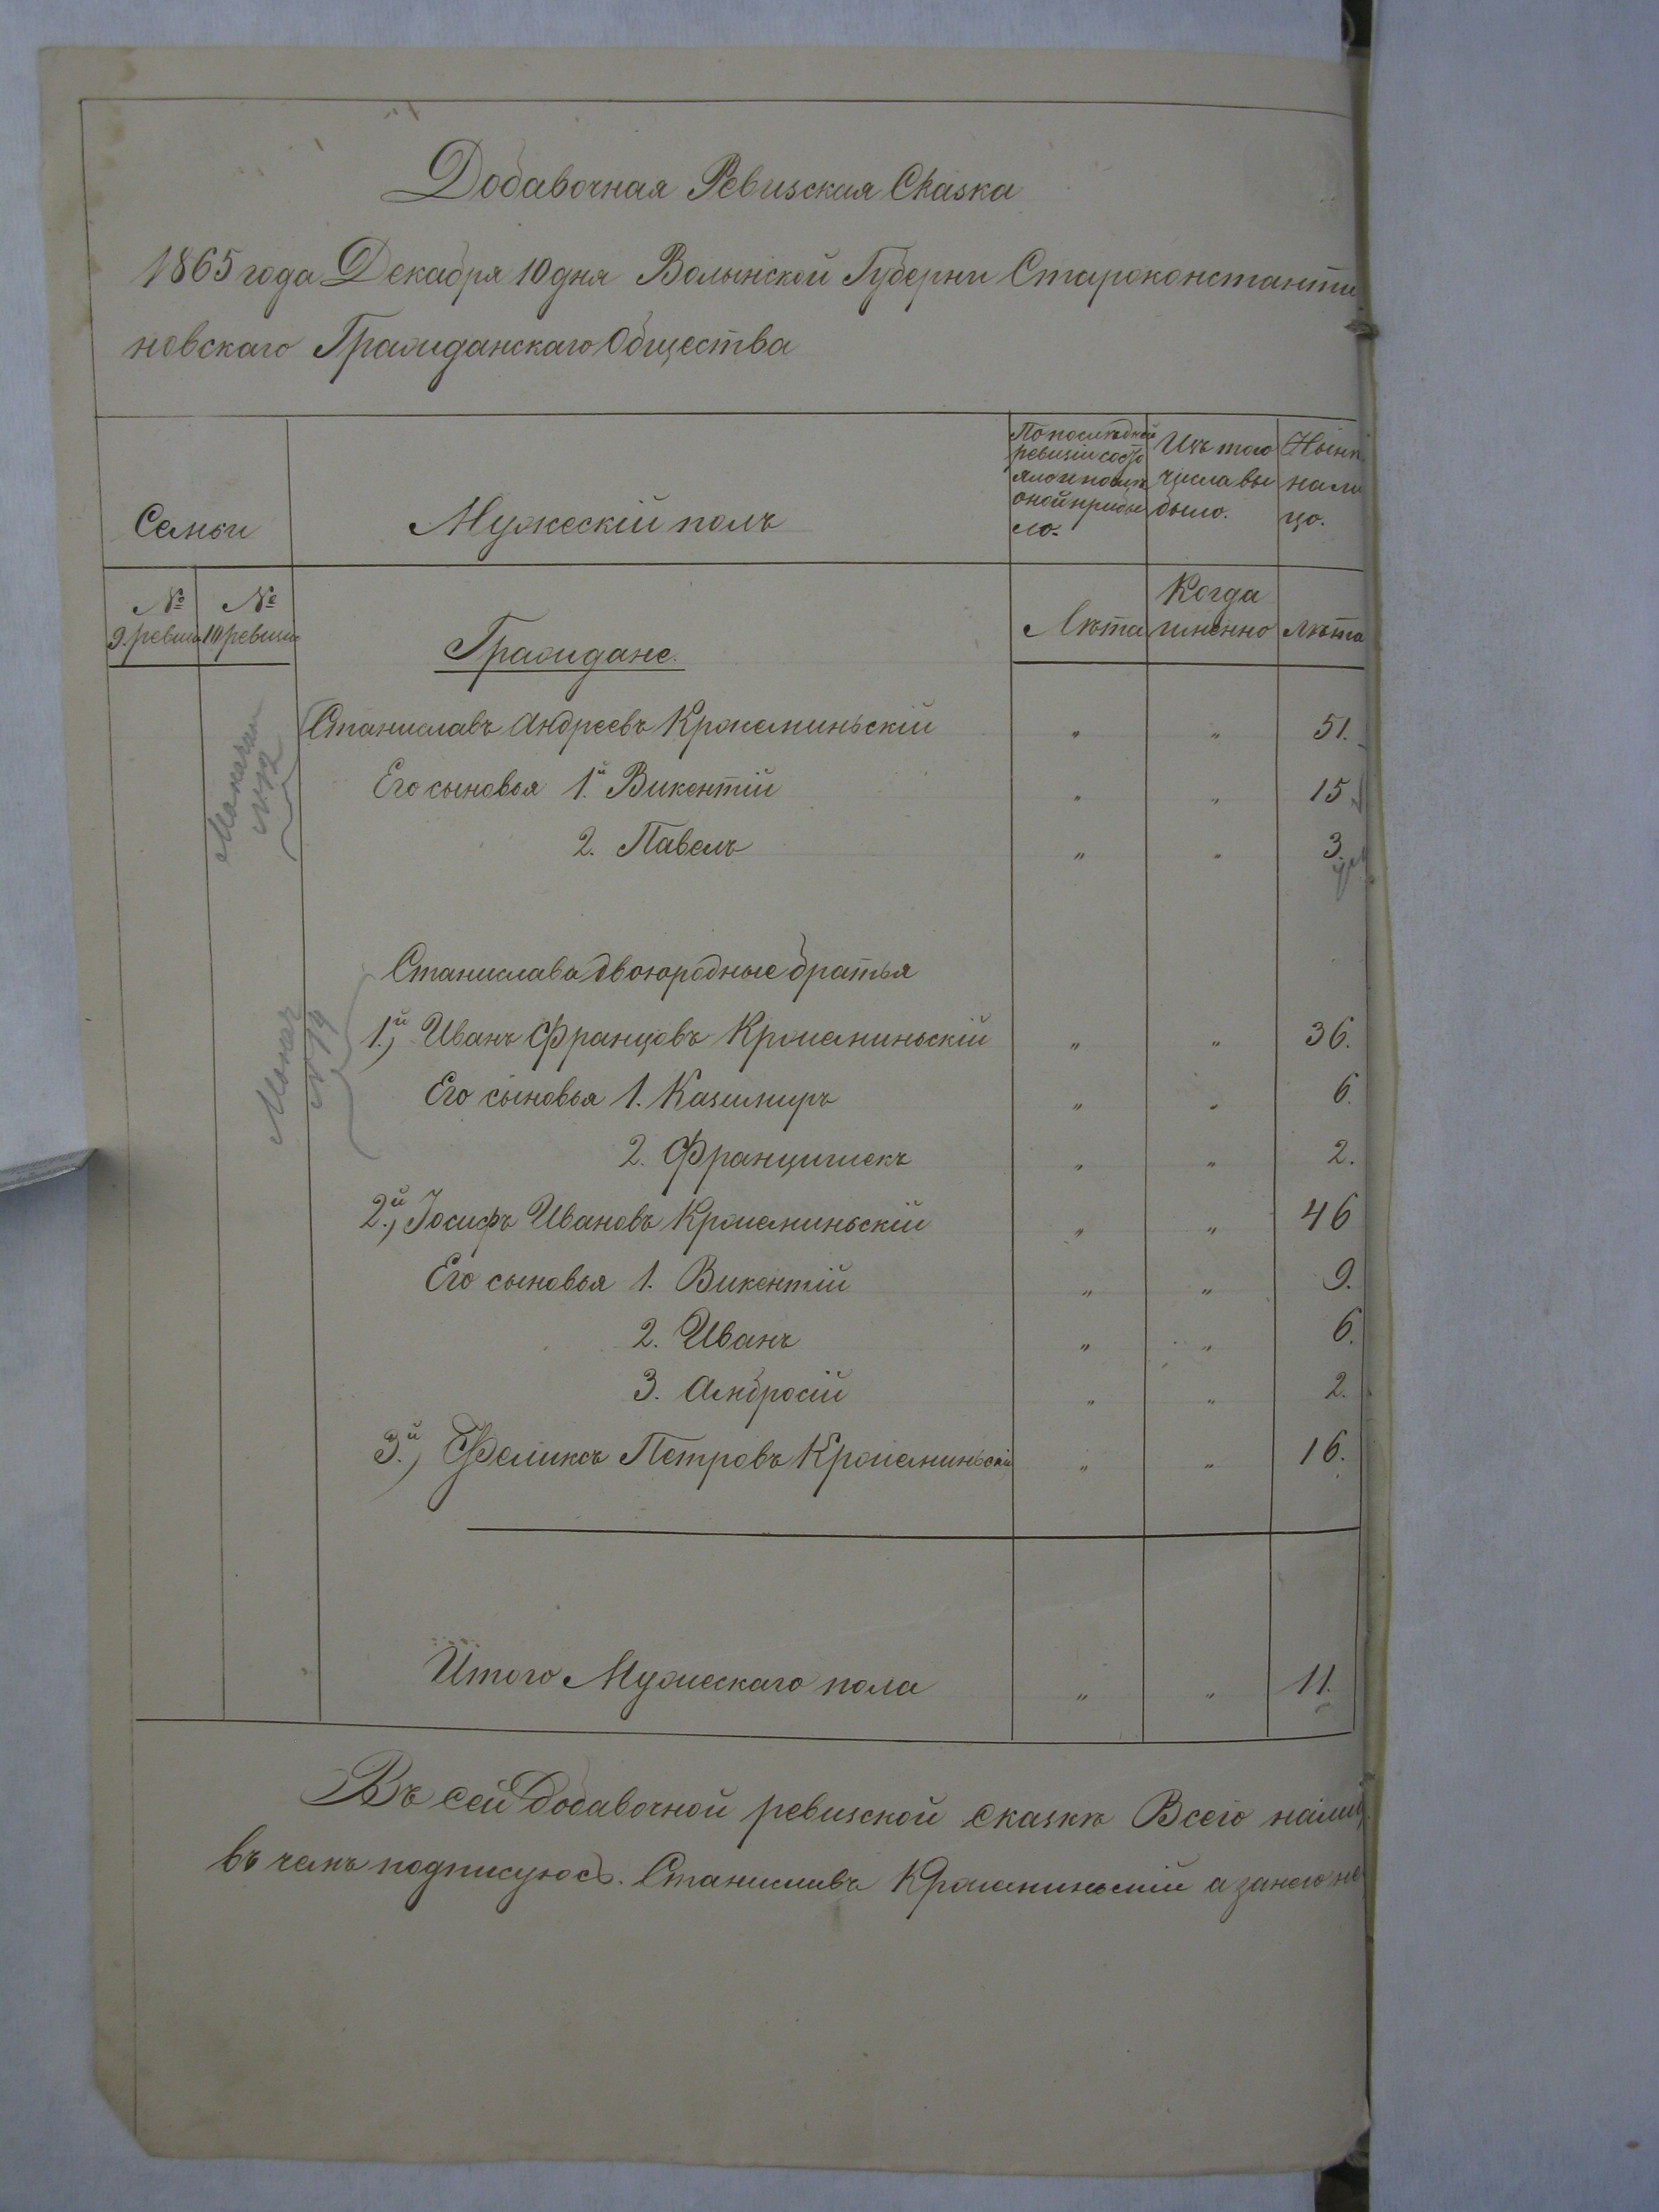 Добавочная Ревизская Сказка
1865 года Декабря 10 дня Волынской Губерни Староконстанти
новскаго Гражданскаго Общества
Семьи
Мужескій полъ
По последней ревизіи состояло и после оной прибыло.
Изъ того числа вы было.
Ныне на ли цо.
№ 9 ревизіи
№ 10 ревизіи
Граждане.
Лѣта
Когда именно
Лѣта
Станиславъ Андреевъ Кржеминьскій " " 51.
Его сыновья 1.й Викентій " " 15
2. Павелъ " " 3.
Станислава двоюродные братья
1.й, Иванъ Францовъ Кржеминьскій " " 36.
Его сыновья 1. Казимиръ " " 6.
2. Францишекъ " " 2.
2.й, Іосифъ Ивановъ Кржеминьскій " " 46
Его сыновья 1. Викентій " " 9.
2. Иванъ " " 6.
3. Амбросій " " 2.
3.й, Феликсъ Петровъ Кржеминьскі " " 16.
Итого Мужескаго пола " " 11.
Въ сей Добавочной ревизской сказкѣ Всего налиц
въ чемъ подписуюсь. Станиславъ Кржеминьскій а за него не